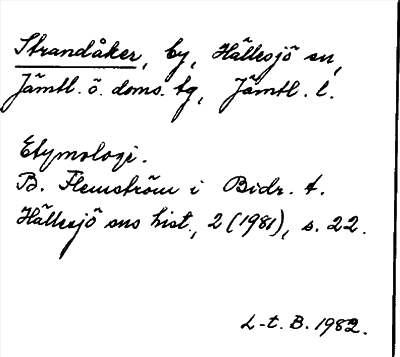 Strandåker, by, Hällesjö sn,
Jämtl. ö. doms. tg, Jämtl. l.
Etymologi.
B. Flemström i Bidr. t.
Hällesjö sns hist., 2 (1981), s. 22.
L-t. B. 1982.